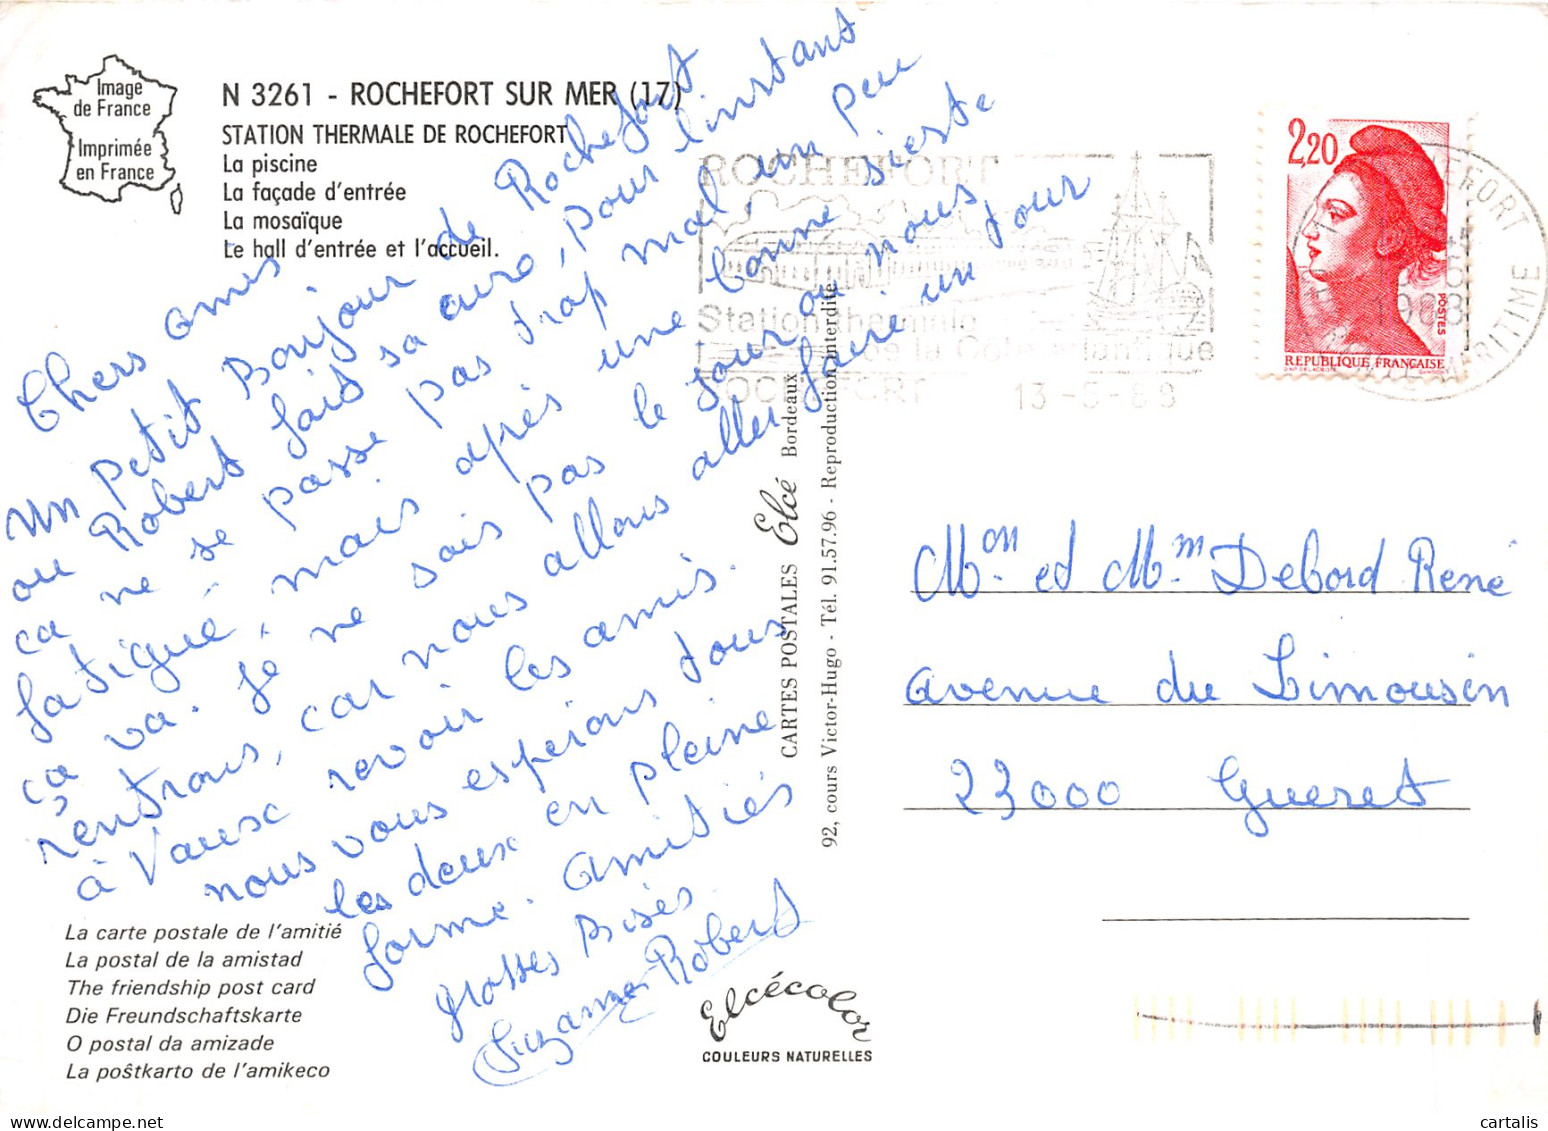 Image
de France
Imprimée
en France
N 3261 - ROCHEFORT SUR MER (17)
STATION THERMALE DE ROCHEFORT
La piscine
La façade d'entrée
La mosaïque
Le hall d'entrée et l'accueil.
Chers amis
Un petit Bonjour de Rochefort
ou Robert fait sa cure, pour l'instant
ça ne se passe pas trop mal, un peu
fatigué, mais après une bonne sieste
ça va. Je ne sais pas le jour ou nous
rentrons, car nous allons aller faire un jour
à Vaux revoir les amis.
nous vous espérons tous
les deux en pleine
forme. Amitiés
grosses Bises
Suzanne Robert
La carte postale de l'amitié
La postal de la amistad
The friendship post card
Die Freundschaftskarte
O postal da amizade
La poŝtkarto de l'amikeco
CARTES POSTALES Elcé Bordeaux
92, cours Victor-Hugo - Tél. 91.57.96 - Reproduction interdite
Elcécolor
COULEURS NATURELLES
ROCHEFORT
Station thermale
de la Côte atlantique
ROCHEFORT 13-5-88
2,20
POSTES
REPUBLIQUE FRANÇAISE
ROCHEFORT
MARITIME
Mon. et Mm. Debord René
avenue du Limousin
23000 Gueret
cartalis